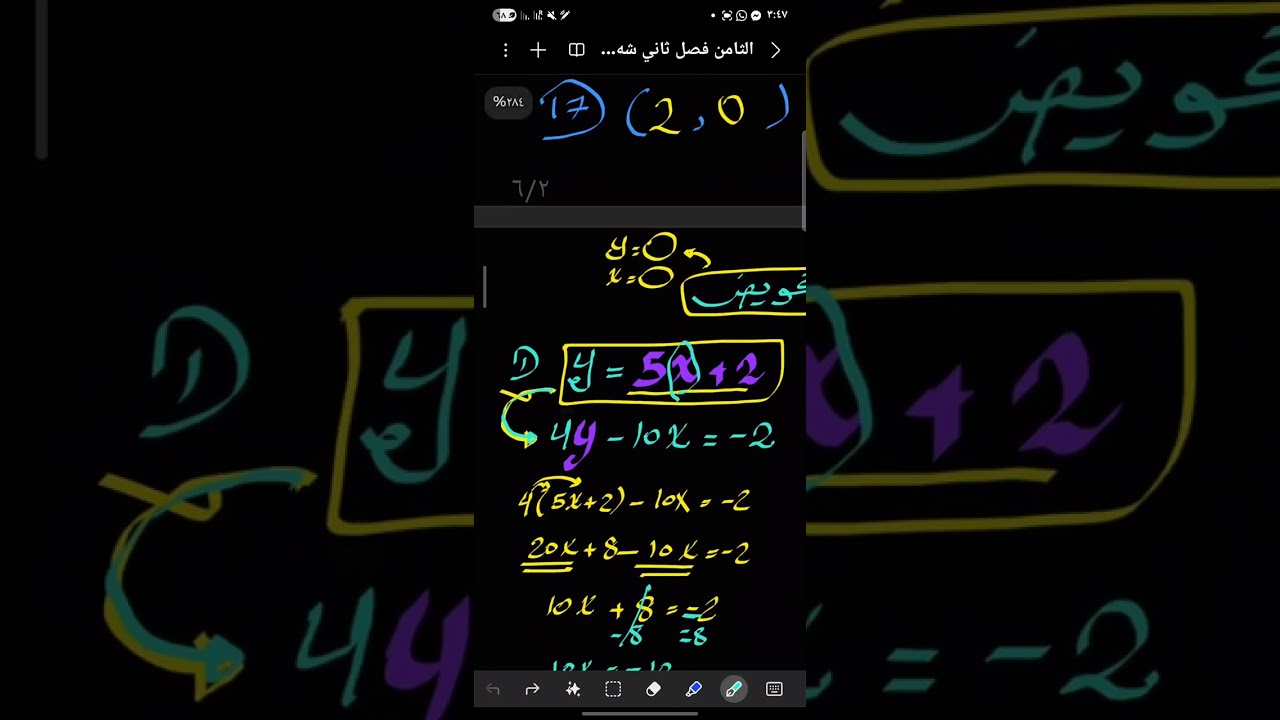 ٣:٤٧
٦٨
الثامن فصل ثاني شه...
%٢٨٤
17 (2,0)
٦/٢
y=0
x=0
1 y = 5x+2
4y - 10x = -2
4(5x+2) - 10x = -2
20x + 8 - 10x = -2
10x + 8 = -2
-8 =8
10x = -10